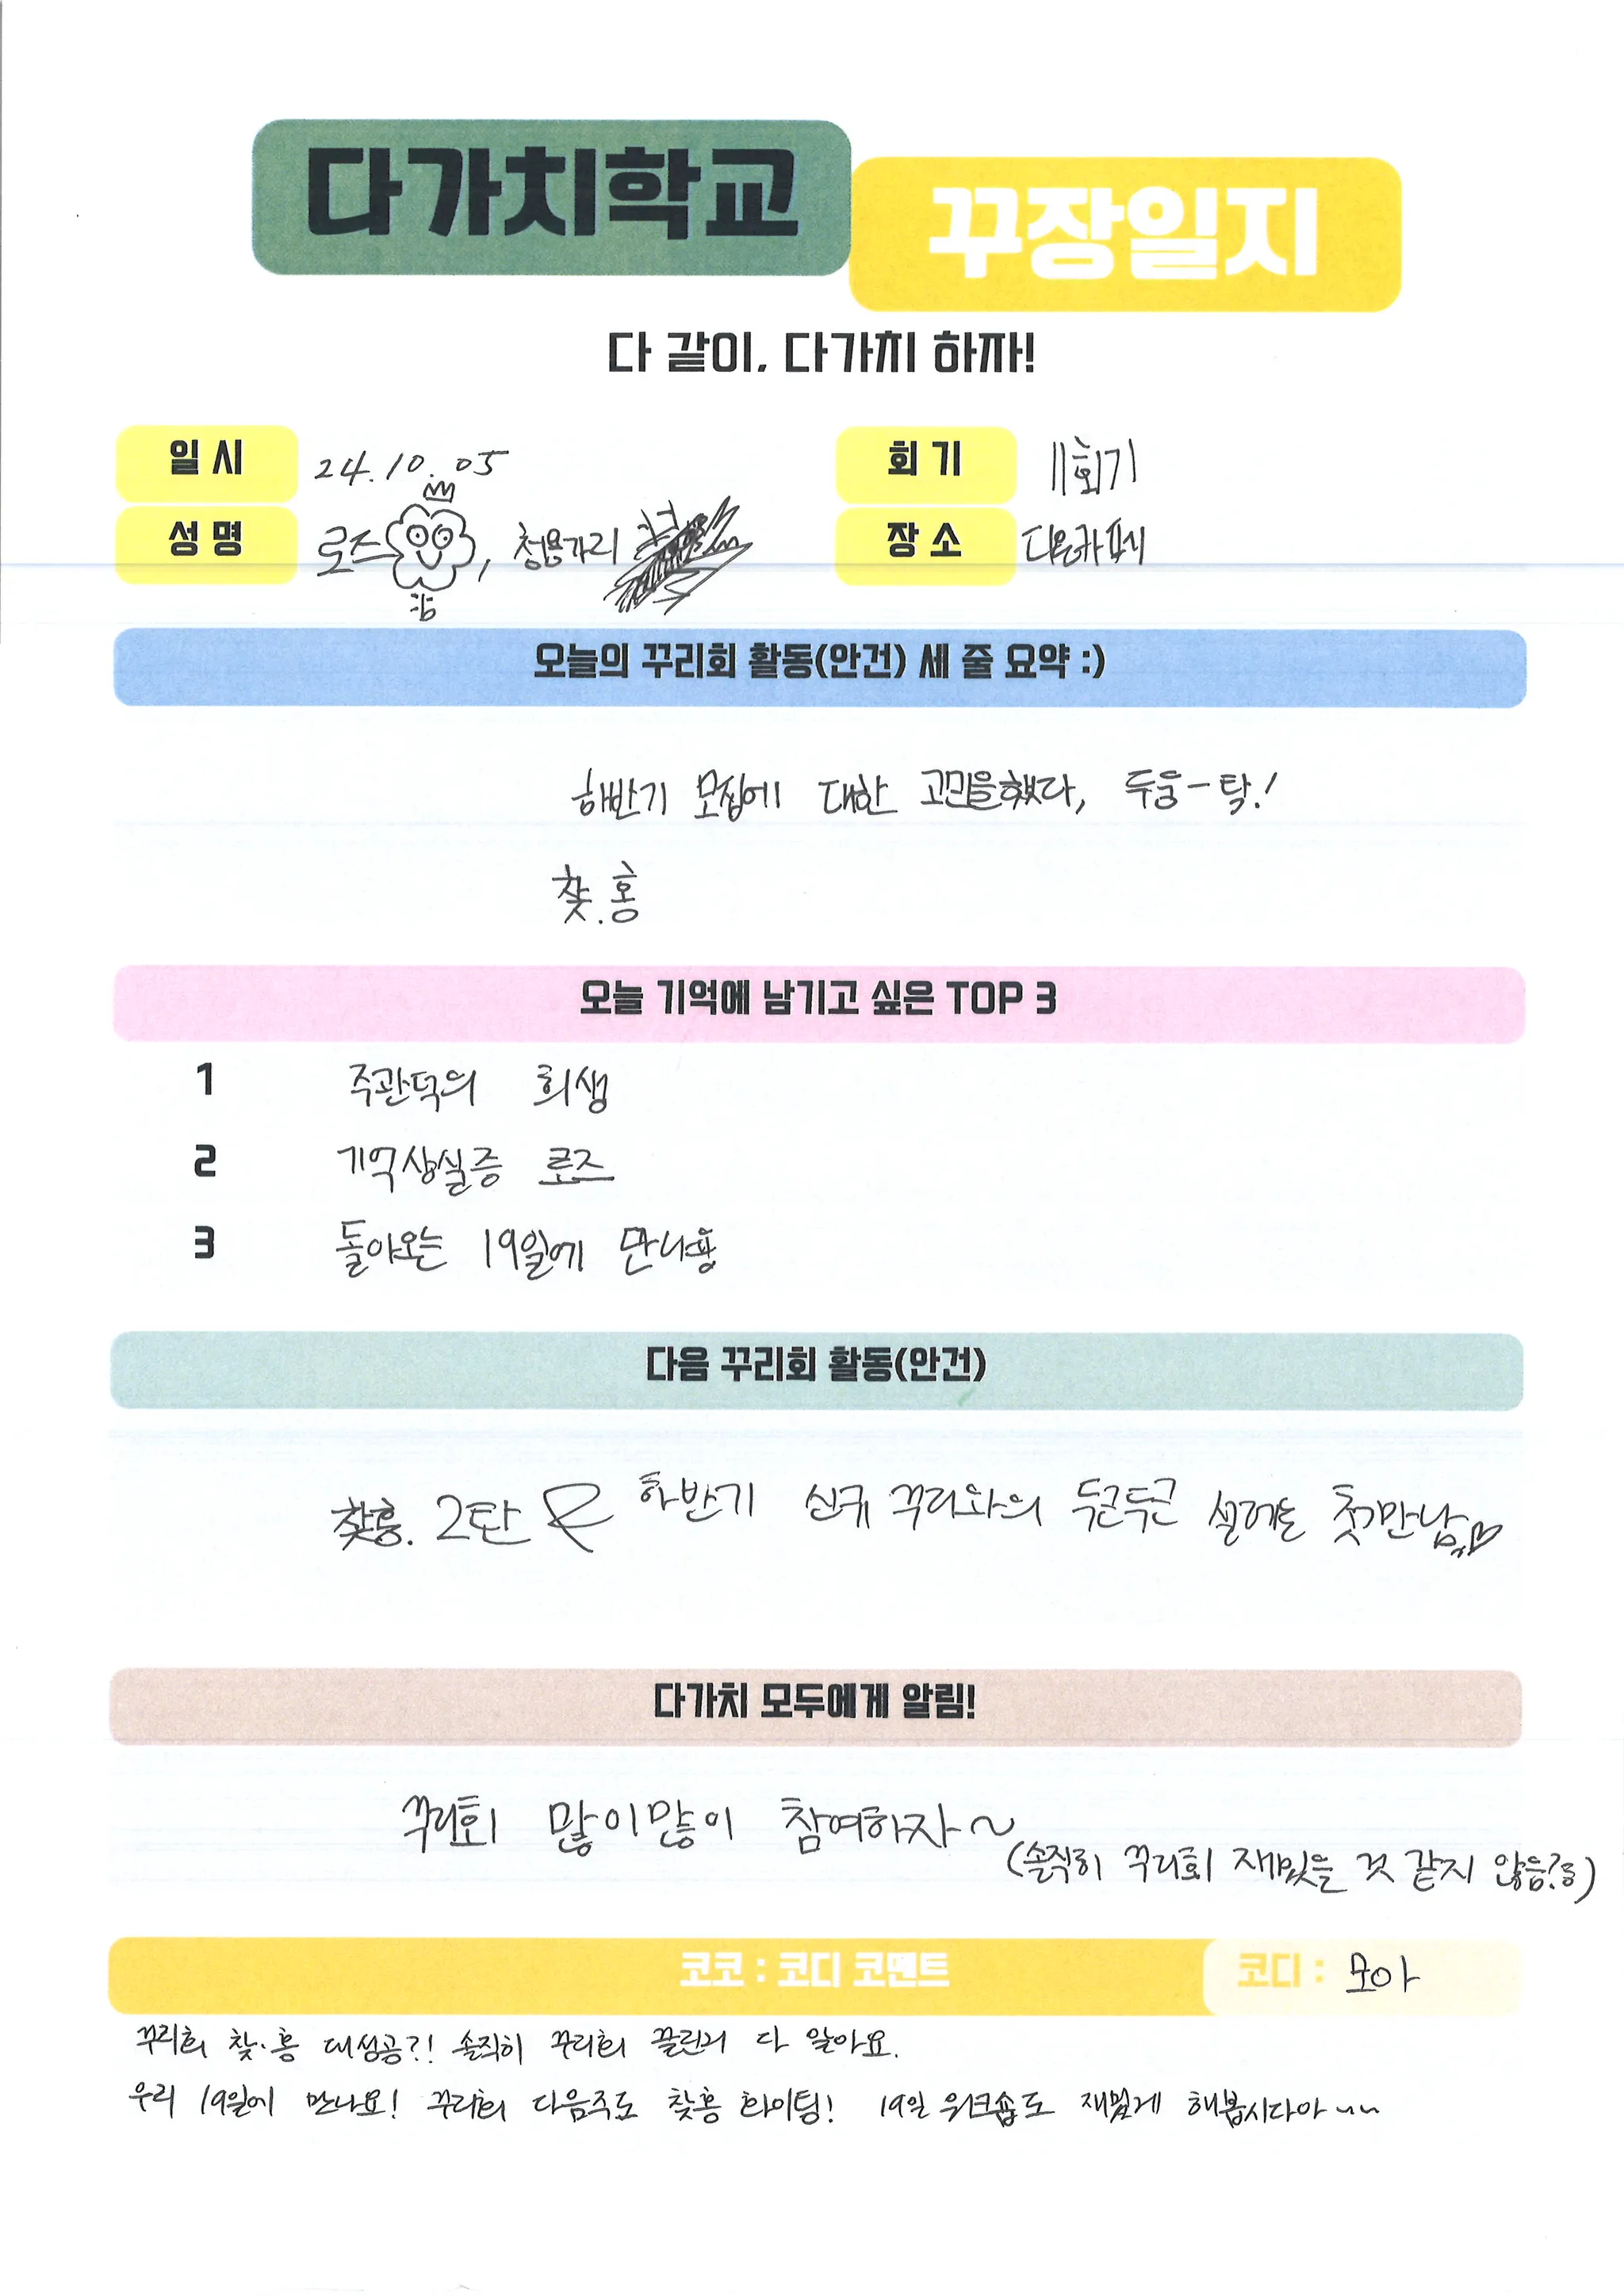 다가치학교
꾸장일지
다 같이, 다가치 하자!
일시 24.10.05 회기 11회기
성명 로즈, 청용가리 장소 다온카페
오늘의 꾸리회 활동(안건) 세 줄 요약 :)
하반기 모집에 대한 고민을했다, 두웅-탁!
찾.홍
오늘 기억에 남기고 싶은 TOP 3
1 주관덕의 희생
2 기억상실증 로즈
3 돌아오는 19일에 만나용
다음 꾸리회 활동(안건)
찾흥. 2탄 & 하반기 신규 꾸리와의 두근두근 설레는 첫만남♡
다가치 모두에게 알림!
꾸리회 많이많이 참여하자~
(솔직히 꾸리회 재밌을 것 같지 않음?)
코코 : 코디 코멘트 코디 : 모아
꾸리회 찾·흥 대성공?! 솔직히 꾸리회 끌린거 다 알아요.
우리 19일에 만나요! 꾸리회 다음주도 찾흥 화이팅! 19일 워크숍도 재밌게 해봅시다아~~